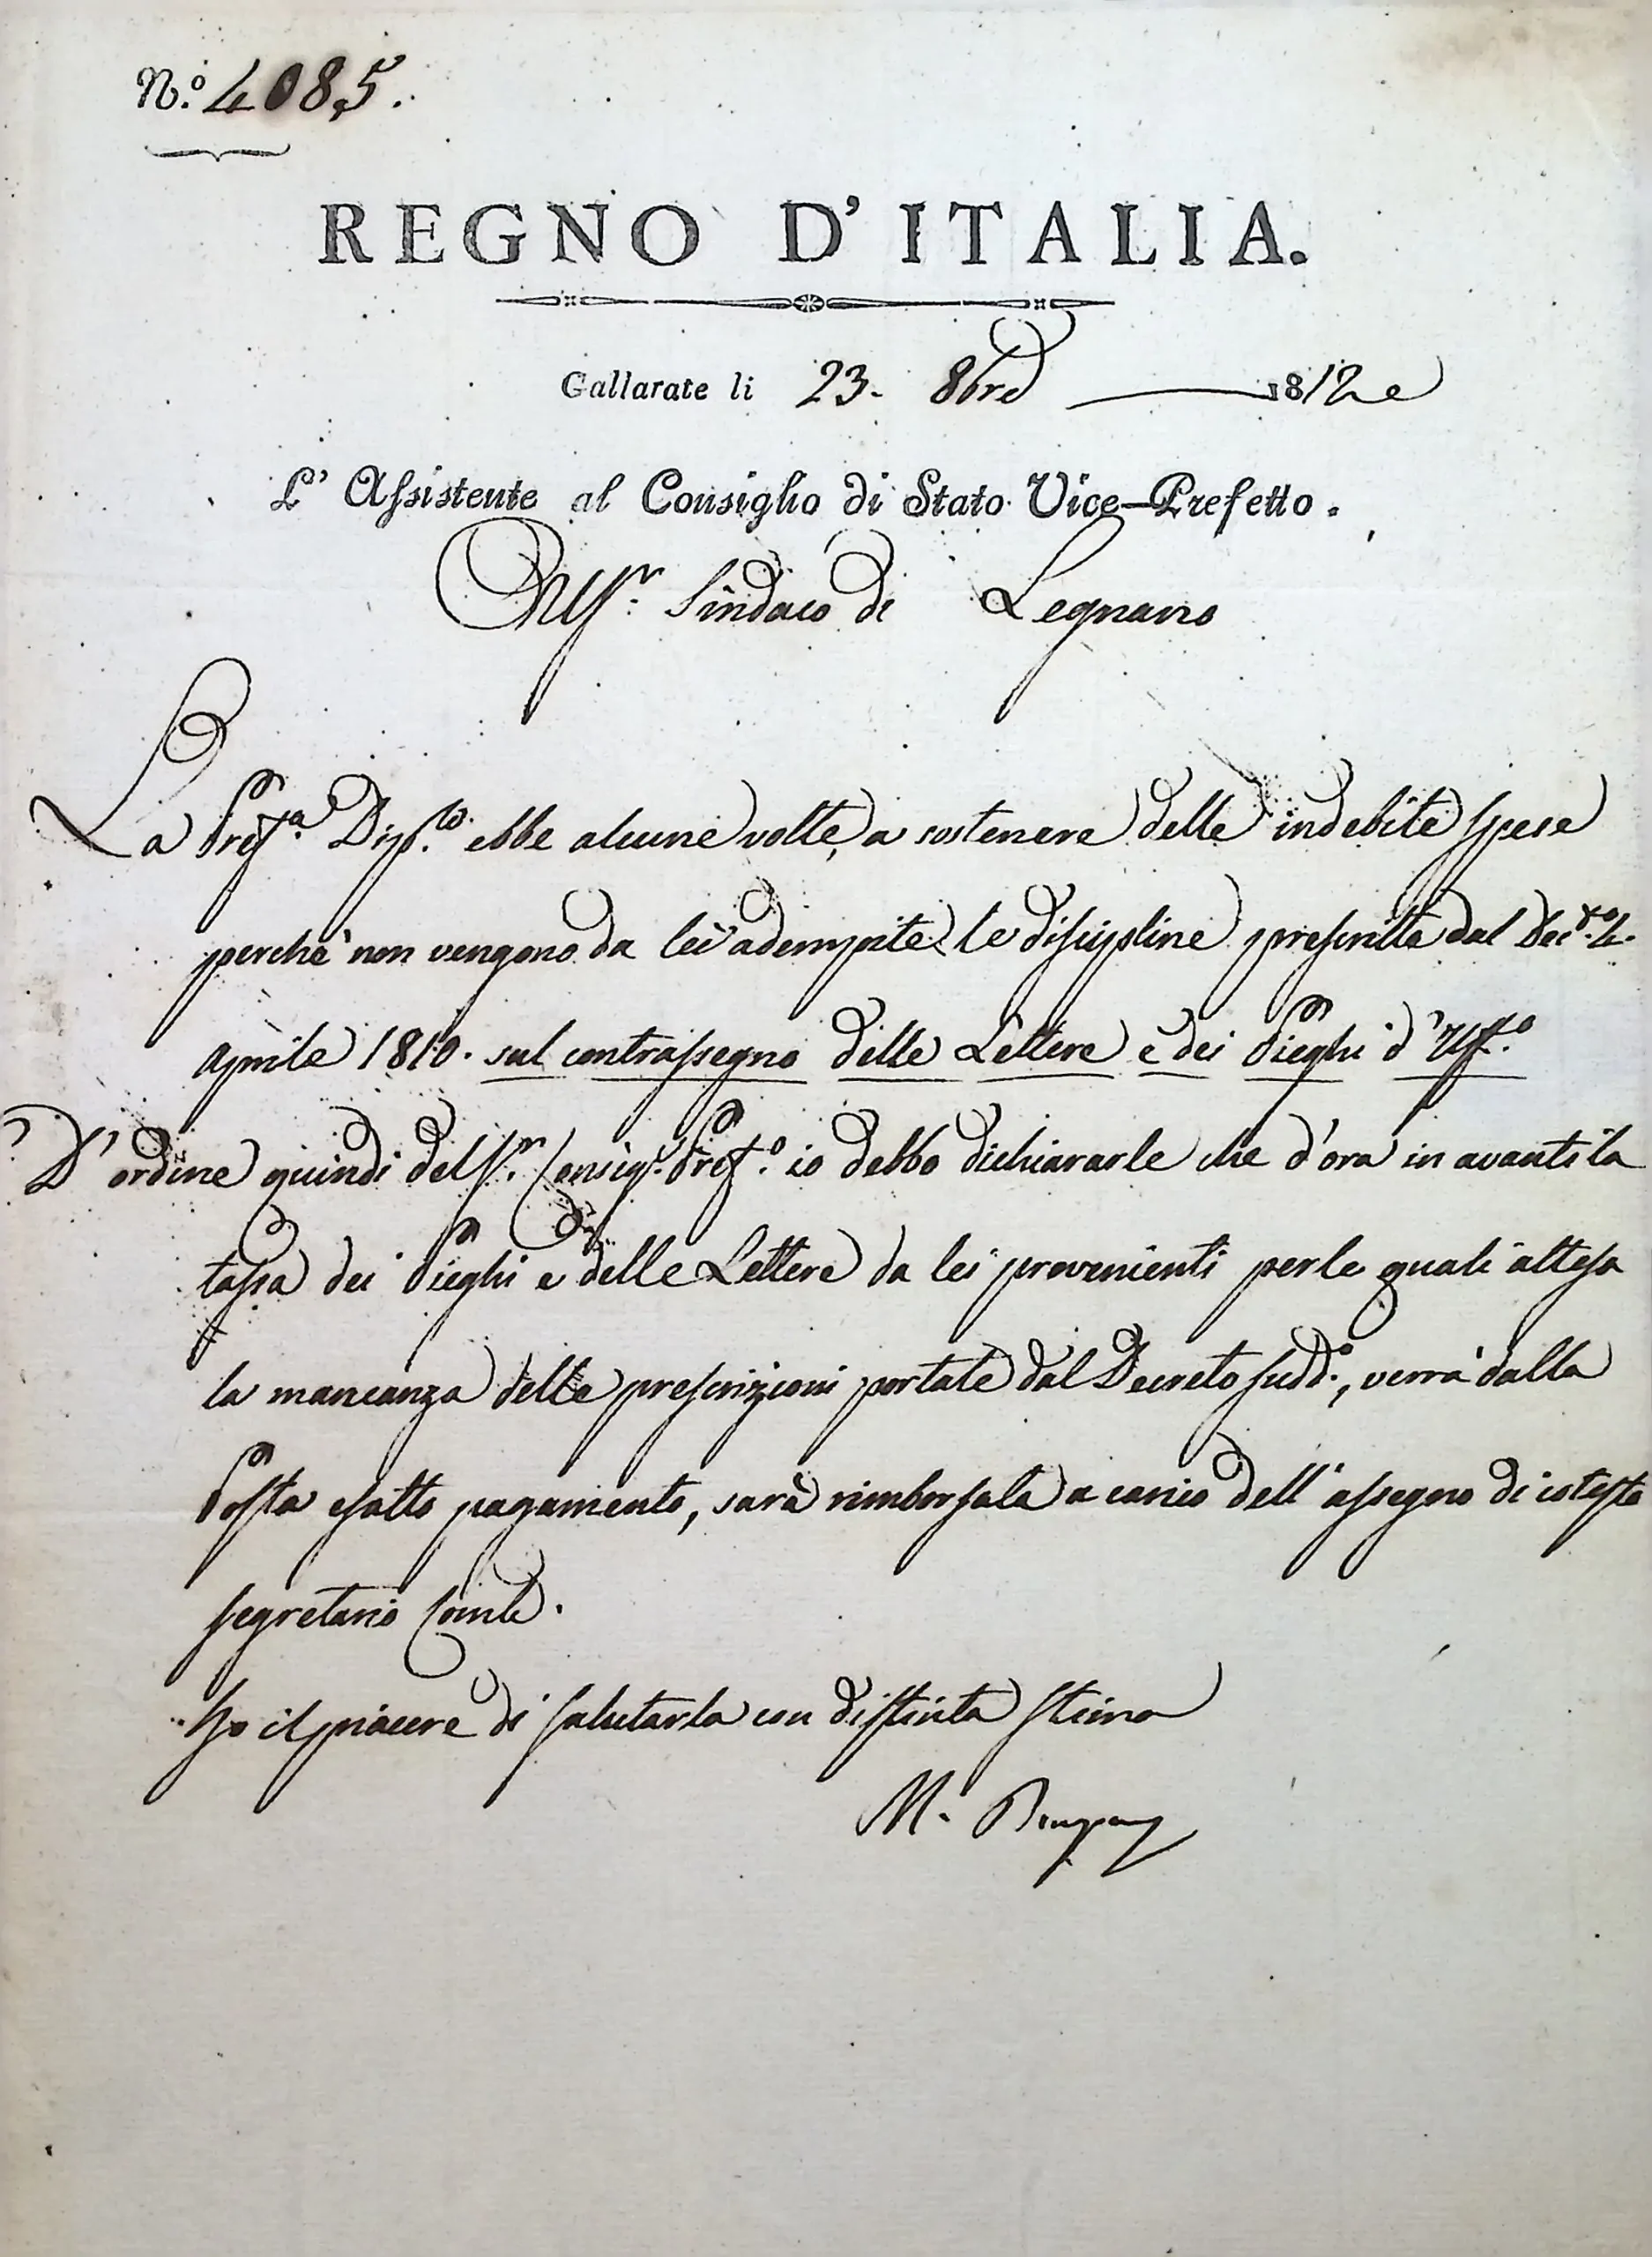 N.º 4085.
REGNO D'ITALIA.
Gallarate li 23. 8bre 1812
L' Assistente al Consiglio di Stato Vice-Prefetto.
Al Sr. Sindaco di Legnano
La Prefª. Dipto. ebbe alcune volte, a sostenere delle indebite spese
perchè non vengono da lei adempite le discipline prescritte dal Decto. 4.
Aprile 1810. sul contrassegno delle Lettere e dei Pieghi d'Uffº.
D'ordine quindi del Sr. Consigr. Prefº. io debbo dichiararle che d'ora in avanti la
tassa dei Pieghi e delle Lettere da lei provenienti per le quali attesa
la mancanza delle prescrizioni portate dal Decreto suddº., verrà dalla
Posta esatto pagamento, sarà rimborsata a carico dell'assegno di cotesto
Segretario Comle.
Ho il piacere di salutarla con distinta stima
M.